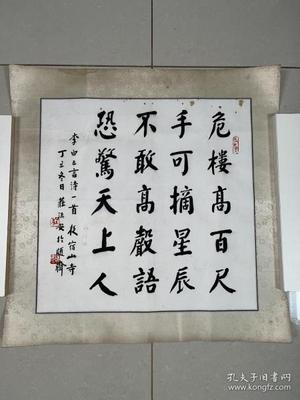 危樓高百尺
手可摘星辰
不敢高聲語
恐驚天上人
李白五言詩一首夜宿山寺
丁丑冬日莊
孔夫子旧书网
www.kongfz.com